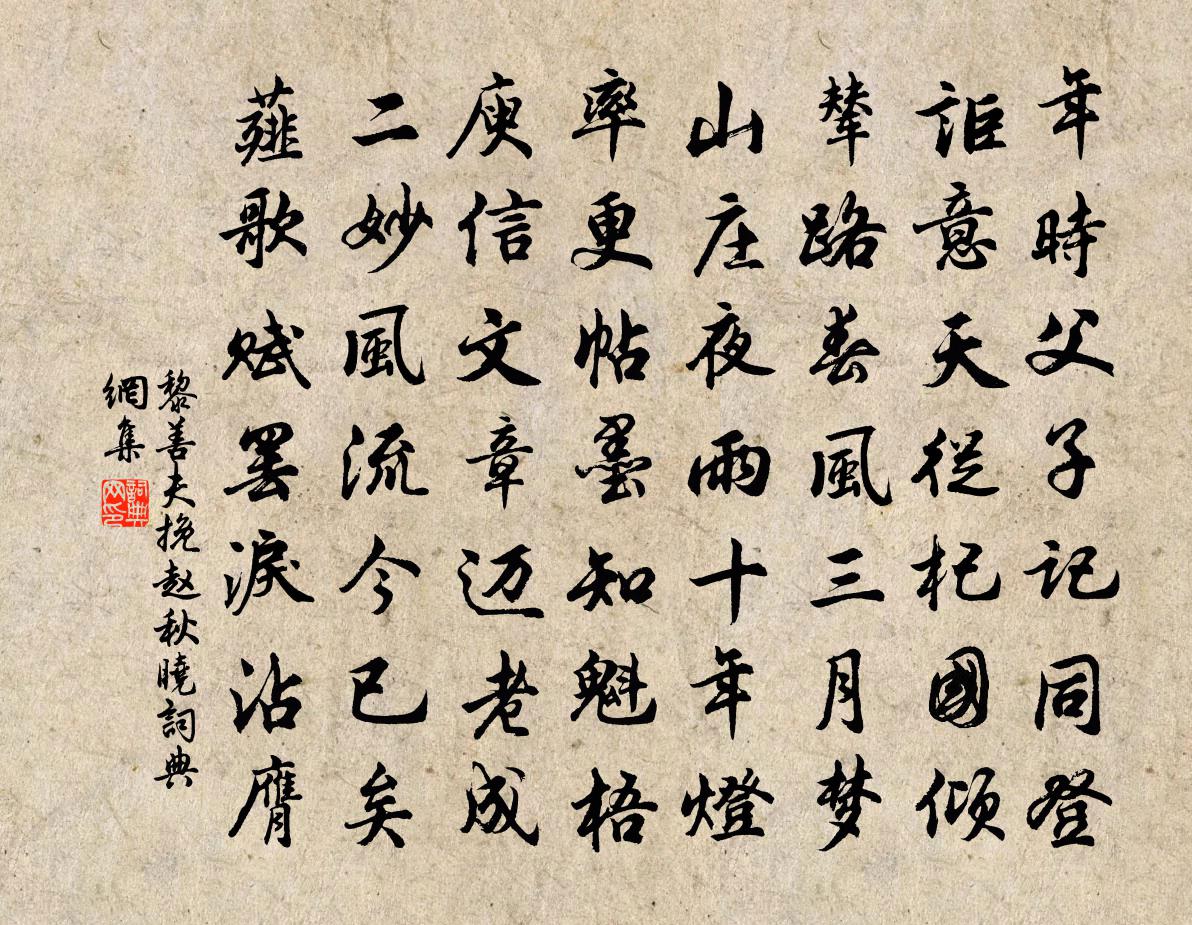 年時父子記同登
詎意天從杞國傾
輦路春風三月梦
山庄夜雨十年燈
率更帖墨知魁梧
庾信文章迈老成
二妙風流今已矣
薤歌賦罢淚沾膺
黎善夫挽赵秋曉詞典
網集
詞典
网印